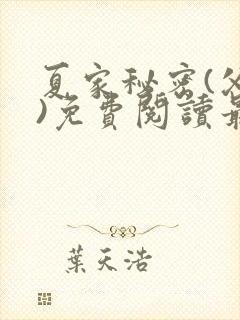 夏家秘密(父
)免費閱讀最
葉天浩